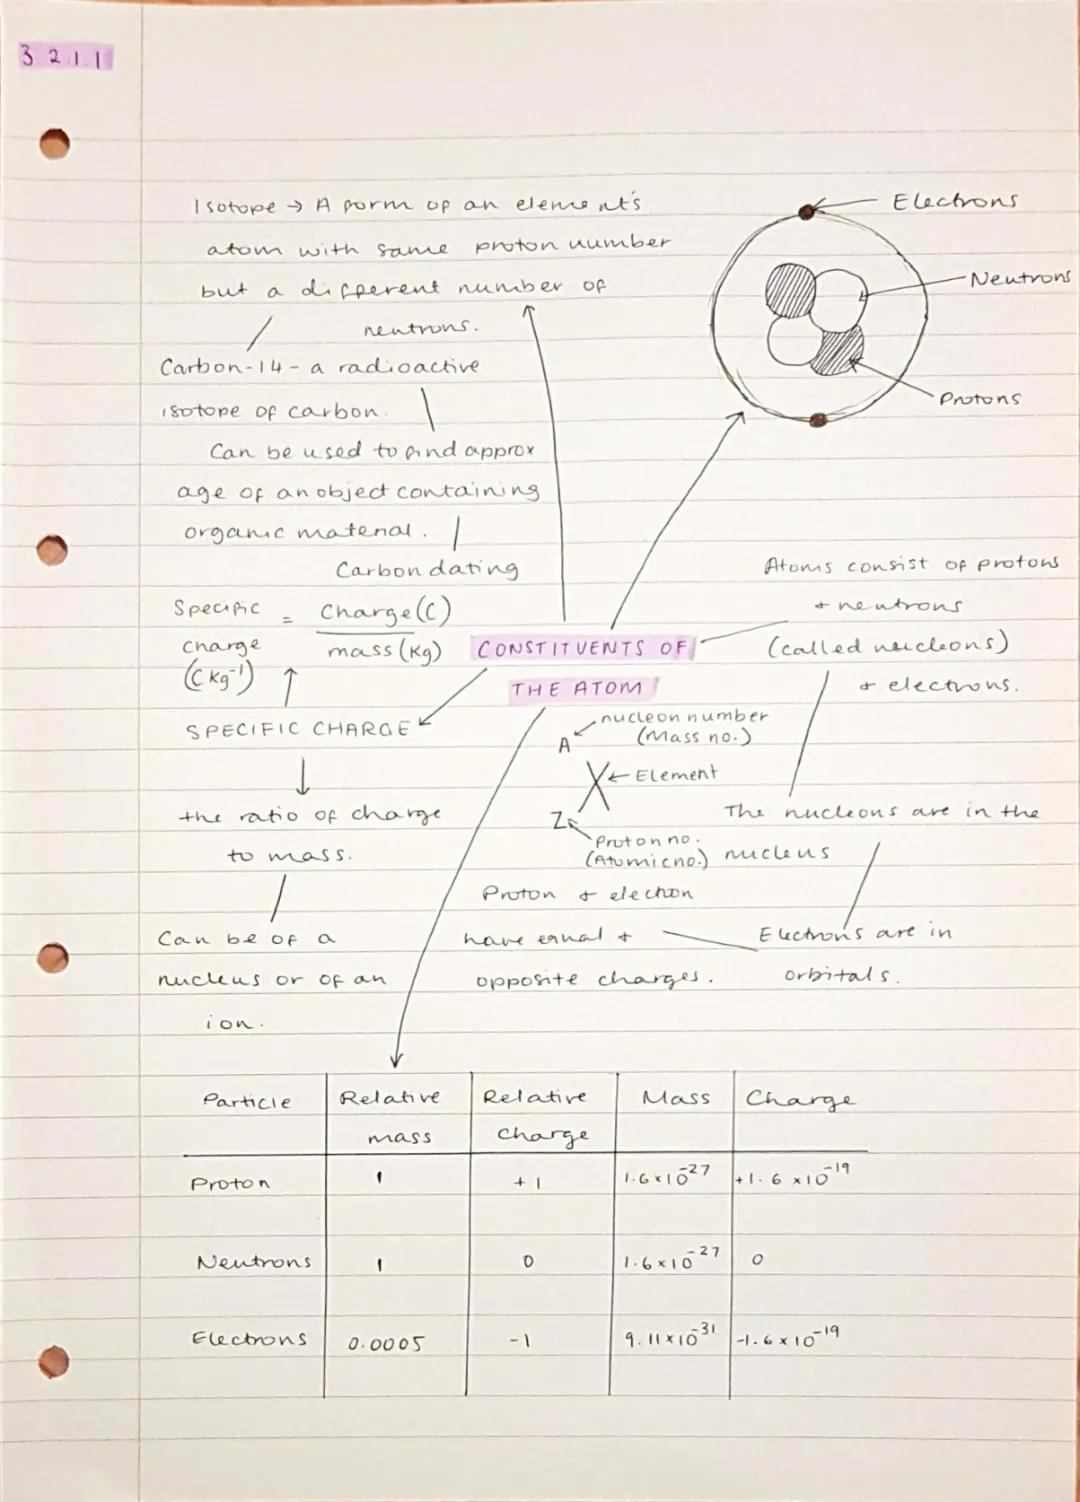 3.2.1.1
Isotope → A form of an element's
atom with same proton number
but a different number of
neutrons.
Carbon-14 - a radioactive
isotope of carbon.
Can be used to find approx
age of an object containing
organic material.
Carbon dating
Electrons
Neutrons
Protons
Specific charge (C kg⁻¹) = Charge (C)
mass (kg)
SPECIFIC CHARGE
the ratio of charge
to mass.
Can be of a
nucleus or of an
ion.
CONSTITUENTS OF
THE ATOM
Atoms consist of protons
+ neutrons
(called nucleons)
+ electrons.
nucleon number
(Mass no.)
A
X ← Element
Z
Proton no.
(Atomic no.)
The nucleons are in the
nucleus
Electrons are in
orbitals.
Proton + electron
have equal +
opposite charges.
Particle Relative mass Relative charge Mass Charge
Proton 1 +1 1.6×10⁻²⁷ +1.6×10⁻¹⁹
Neutrons 1 0 1.6×10⁻²⁷ 0
Electrons 0.0005 -1 9.11×10⁻³¹ -1.6×10⁻¹⁹